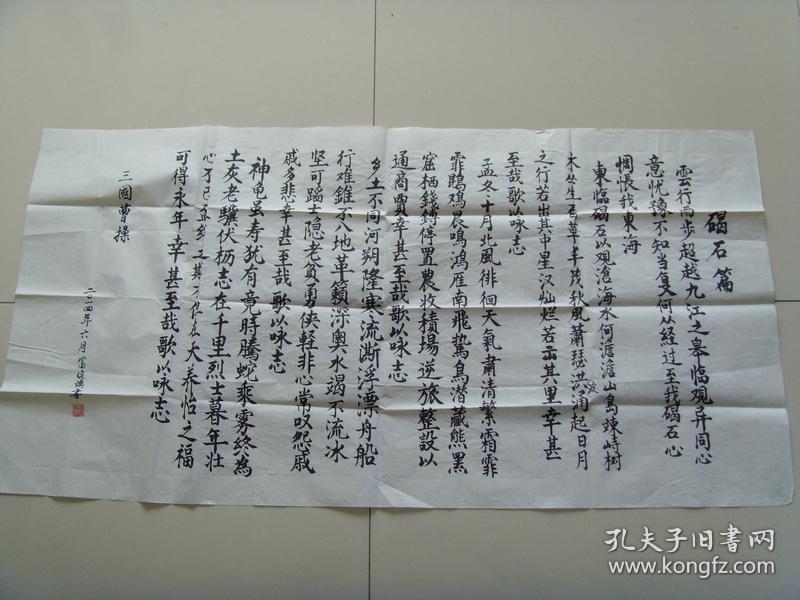 碣石篇
雲行雨步超越九江之皋臨观异同心
意忧豫不知当复何从经过至我碣石心
惆悵我東海
東临碣石以观滄海水何澹澹山島竦峙树
木丛生百草丰茂秋風蕭瑟洪波涌起日月
之行若出其中星汉灿烂若出其里幸甚
至哉歌以咏志
孟冬十月北風徘徊天氣肅清繁霜霏
霏鵾鸡晨鳴鸿雁南飛鸷鳥潜藏熊黑
窟栖錢鎛停置農收積場逆旅整設以
通商賈幸甚至哉歌以咏志
乡土不同河朔隆寒流澌浮漂舟船
行难錐不入地革籟深奥水竭不流冰
坚可蹈士隐者貧勇侠軽非心常叹怨戚
戚多悲幸甚至哉歌以咏志
神龟虽寿犹有竟時騰蛇乘雾终為
土灰老驥伏枥志在千里烈士暮年壮
心不已盈缩之其不但在天养怡之福
可得永年幸甚至哉歌以咏志
三國曹操
二〇一四年六月
孔夫子旧书网
www.kongfz.com